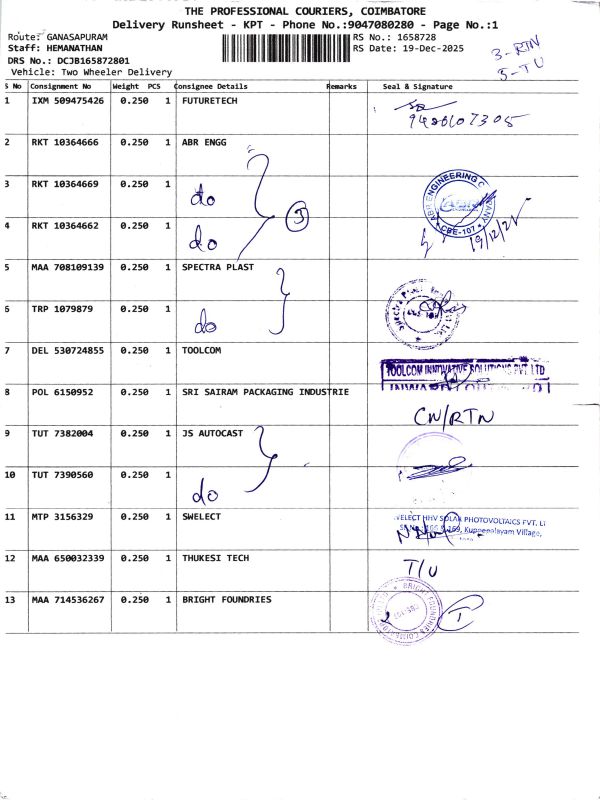 THE PROFESSIONAL COURIERS, COIMBATORE
Delivery Runsheet - KPT - Phone No.:9047080280 - Page No.:1
Route: GANASAPURAM
RS No.: 1658728
Staff: HEMANATHAN
RS Date: 19-Dec-2025
DRS No.: DCJB165872801
Vehicle: Two Wheeler Delivery
3-RTN
5-TU
S No Consignment No Weight PCS Consignee Details Remarks Seal & Signature
1 IXM 509475426 0.250 1 FUTURETECH
2 RKT 10364666 0.250 1 ABR ENGG
3 RKT 10364669 0.250 1 do
3
ABR ENGINEERING
CBE-107
19/12/25
4 RKT 10364662 0.250 1 do
5 MAA 708109139 0.250 1 SPECTRA PLAST
6 TRP 1079879 0.250 1 do
7 DEL 530724855 1 0.250 TOOLCOM
TOOLCOM INNOVATIVE SOLUTIONS PVT. LTD
8 POL 6150952 0.250 1 SRI SAIRAM PACKAGING INDUSTRIE
CN/RTN
9 TUT 7382004 0.250 1 JS AUTOCAST
10 TUT 7390560 0.250 1 do
11 MTP 3156329 0.250 1 SWELECT
HHV SOLAR PHOTOVOLTAICS PVT.
169, Kuppepalayam Village,
12 MAA 650032339 0.250 1 THUKESI TECH
T/U
13 MAA 714536267 0.250 1 BRIGHT FOUNDRIES
BRIGHT FOUNDRIES COIMBATORE
T